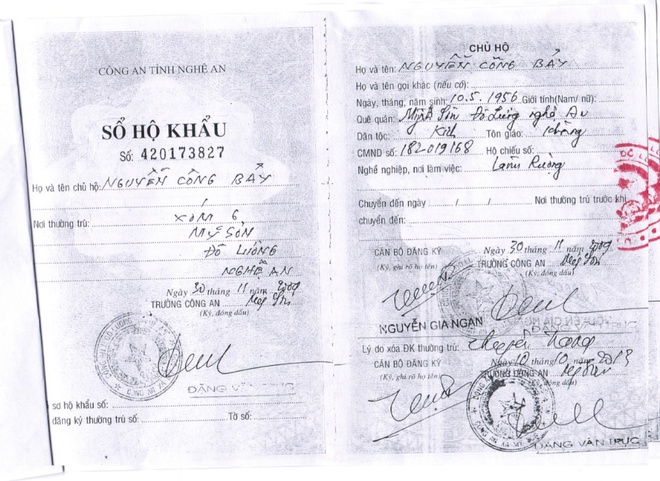 CÔNG AN TỈNH NGHỆ AN
SỔ HỘ KHẨU
Số: 420173827
Họ và tên chủ hộ: NGUYỄN CÔNG BẢY
Nơi thường trú: XÓM 6
MỸ SƠN
ĐÔ LƯƠNG
NGHỆ AN
Ngày 30 tháng 11 năm 2009
TRƯỞNG CÔNG AN Mỹ Sơn
(Ký, đóng dấu)
ĐẶNG VĂN TRỰC
sơ hộ khẩu số:
đăng ký thường trú số: Tờ số:
CHỦ HỘ
Họ và tên: NGUYỄN CÔNG BẢY
Họ và tên gọi khác (nếu có):
Ngày, tháng, năm sinh: 10.5.1956 Giới tính(Nam/ nữ):
Quê quán: Mỹ Sơn Đô Lương Nghệ An
Dân tộc: Kinh Tôn giáo: không
CMND số: 182019168 Hộ chiếu số:
Nghề nghiệp, nơi làm việc: Làm Ruộng
Chuyển đến ngày / / Nơi thường trú trước khi
chuyển đến:
CÁN BỘ ĐĂNG KÝ Ngày 30 tháng 11 năm 2009
(Ký, ghi rõ họ tên) TRƯỞNG CÔNG AN Mỹ Sơn
(Ký, đóng dấu)
NGUYỄN GIA NGÂN
Lý do xóa ĐK thường trú:
CÁN BỘ ĐĂNG KÝ Ngày 10 tháng 10 năm 2013
(Ký, ghi rõ họ tên) TRƯỞNG CÔNG AN Mỹ Sơn
ĐẶNG VĂN TRỰC